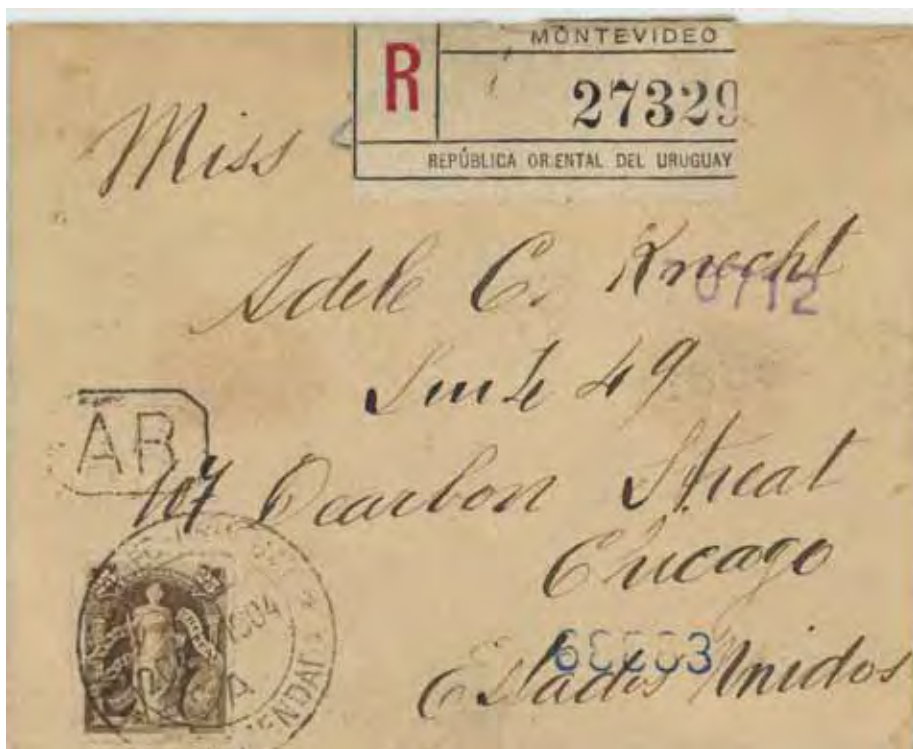 MONTEVIDEO
R
27329
REPÚBLICA ORIENTAL DEL URUGUAY
Miss
Adele C. Knecht
0712
49
AR
107 Dearbon Streat
Chicago
1904
A
60003
Estados Unidos